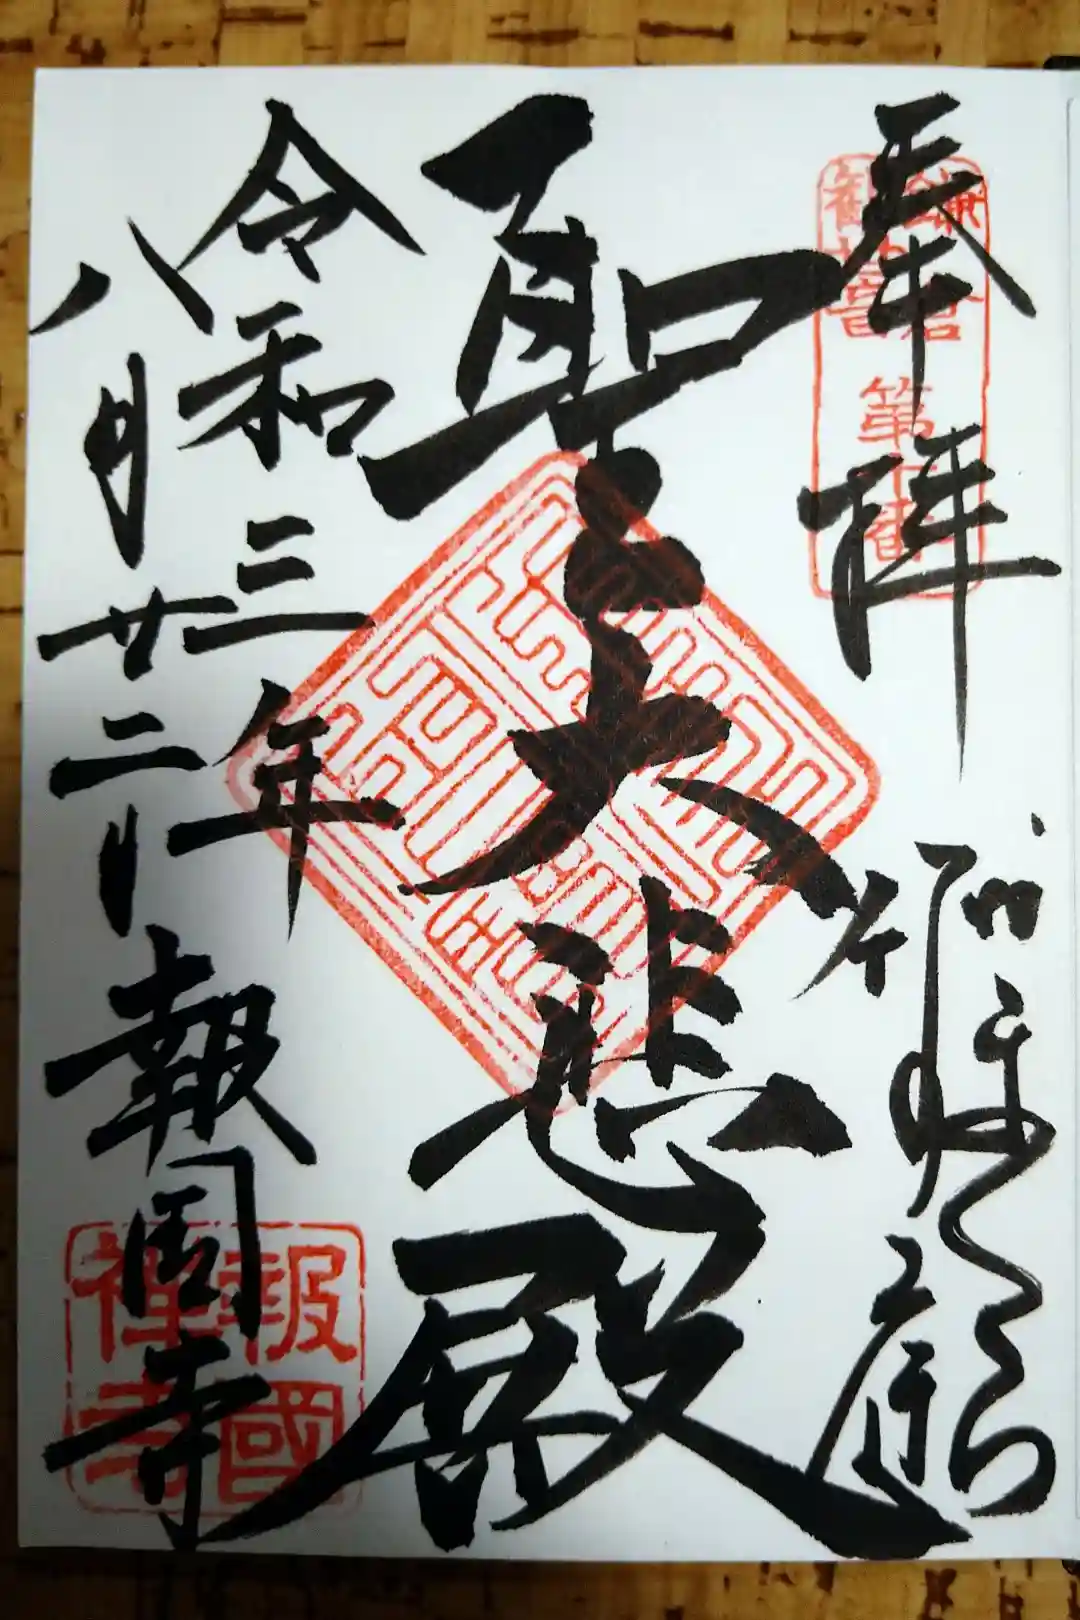 奉拝
鎌倉
観世音
第十番
聖大悲殿
令和三年
八月廿二日
報国寺
報國
禅寺